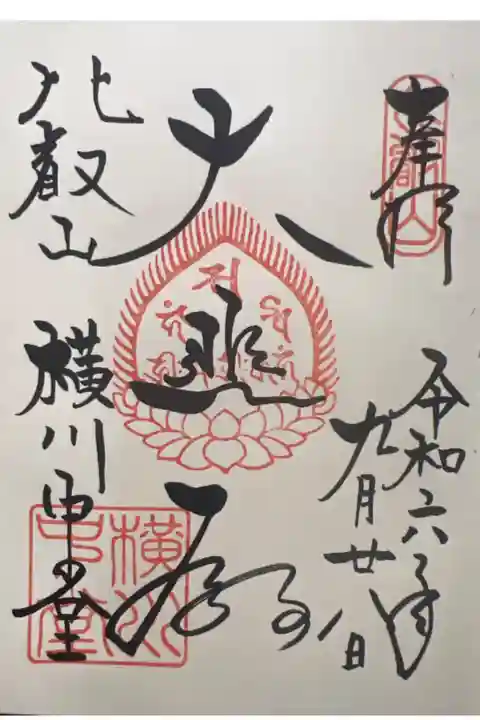 奉拝
令和六年
九月廿八日
大悲殿
比叡山
横川中堂
比叡山
横川
中堂